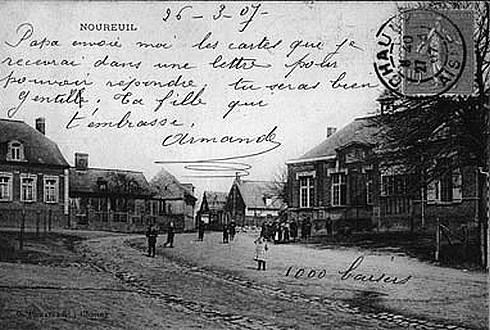 NOUREUIL
26-3-07
Papa envoie moi les cartes que je
recevrai dans une lettre pour
pouvoir repondre tu seras bien
gentille. Ta fille que
t'embrasse.
Armande
CHAU
AISNE
1000 baisers